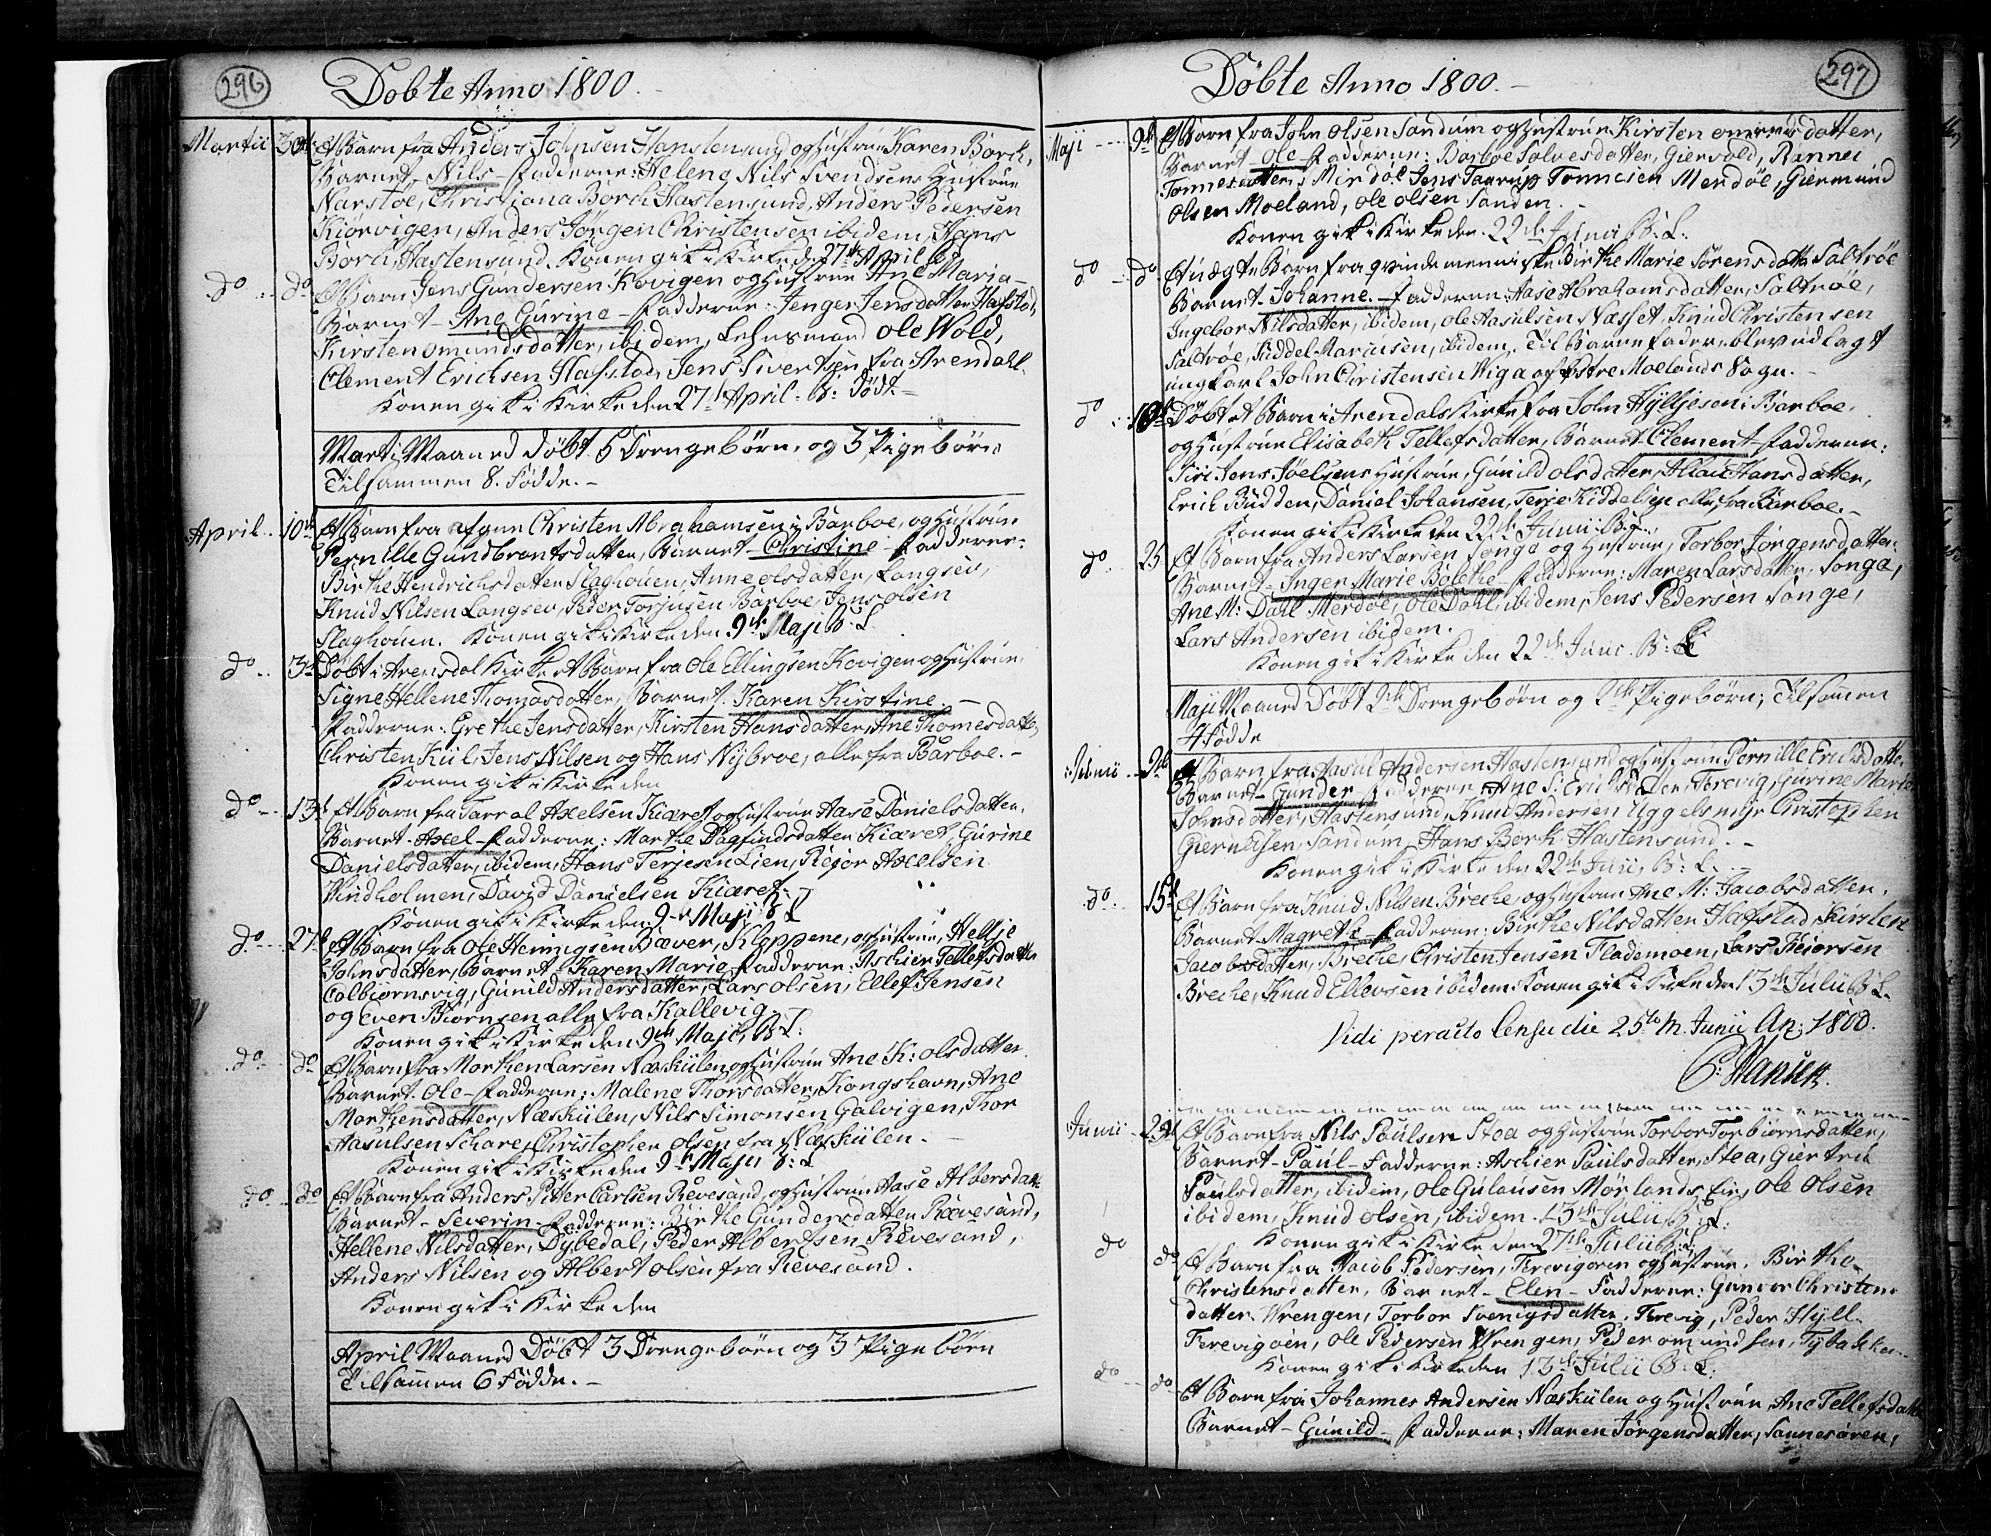 296
Döbte Anno 1800.
Martii 30te Et Barn fra Anders Johnsen Hastensund og Hustrue Karen Bork,
Barnet Nils Fadderne: Helene Nils Svendsens Hustrue
Narstöe, Christiana Bork Hastensund, Anders Pedersen
Kiörvigen, Anders Jörgen Christensen ibidem, Hans
Bork, Hastensund. Konen gik i Kirke den 27de April
do do Et Barn Jens Gundersen Kovigen og Hustrue Ane Maria
Barnet - Ane Gurine - Fadderne: Jenger Jensdatter Hafstad,
Kirsten Omundsdatter, ibidem, Lehnsmand Ole Wold,
Clement Erichsen Hafstad, Jens Sivertsen fra Arendahl.
Konen gik i Kirke den 27d April
Marti Maaned Döbt 5 Drengebörn, og 3 Pigebörn
Tilsammen 8. Födde. -
April 10de Et Barn fra afgne Christen Abrahamsen i Barboe, og Hustrue
Pernille Gundbrantsdatter, Barnet - Christine - Fadderne:
Birthe Hendrichsdatter Slaghouen, Anne Olsdatter, Langsev,
Knud Nilsen Langsev, Peder Torjusen Barboe, Jens Olsen
Slaghouen. Konen gik i Kirke den 9de Maji B. L.
do 3d Döbt i Arendal Kirke Et Barn fra Ole Ellingsen Kovigen og Hustrue
Signe Hellene Thomasdatter, Barnet. Karen Kirstine. -
Fadderne: Grethe Jensdatter, Kirsten Hansdatter, Ane Thomesdatter,
Christen Kiil, Jens Nilsen og Hans Nybroe, alle fra Barboe. -
Konen gik i Kirke den
do 13d Et Barn fra Tarral Axelsen Kiæret og Hustrue Aase Danielsdatter.
Barnet. Axel - Fadderne: Marthe Dagfindsdatter Kiæret, Gurine
Danielsdatter, ibidem, Hans Terjesen Lien, Rejor Axelsen
Vindholmen, David Danielsen Kiæret.
Konen gik i Kirke den 9de Maji B L
do 27d Et Barn fra Ole Hennigsen Bæver, Kloppene, og Hustrue, Helje
Johnsdatter, Barnet - Karen Marie Fadderne: Aschier Tellefsdatter
Colbiörnsvig, Gunild Andersdatter, Lars Olsen, Ellef Jensen
og Even Biörnsen alle fra Kallevig
Konen gik i Kirke den 9de Maji, B L:
do do Et Barn fra Morthen Larsen Næskilen og Hustrue Ane K: Olsdatter
Barnet. Ole - Fadderne: Malene Thorsdatter, Kongshavn, Ane
Morthensdatter, Næskilen, Nils Simonsen Galvigen, Thor
Aasulsen Schare, Christopher Olsen fra Næskilen. -
Konen gik i Kirke den 9de Maji B: L
do do Et Barn fra Anders Pitter Carlsen Revesand, og Hustrue Aase Albersdatter
Barnet - Severin - Fadderne: Birthe Gundersdatter Rævesand,
Hellene Nilsdatter, Dybedal, Peder Albertsen Revesand,
Anders Nilsen og Albert Olsen fra Revesand.
Konen gik i Kirke den
April Maaned Döbt 3 Drengebörn og 3 Pigebörn
Tilsammen 6 Födde. -
297
Döbte Anno 1800. -
Maji 9de Et Barn fra John Olsen Sandum og Hustrue Kirsten Omunsdatter,
Barnet Ole - Fadderne: Barboe Salvesdatter, Giervold, Rannei
Tönnesdatter, Mirdöe Jens Taarup Tönnesen Merdöe, Giermund
Olsen Moeland, Ole Olsen Sanden. -
Konen gik i Kirke den 22de Junii B. L.
do do Et uægte Barn fra qvindemenniske Birthe Marie Sörensdatter Saltröe
Barnet - Johanne. - Fadderne: Aase Abrahamsdatter, Saltröe,
Ingebor Nilsdatter, ibidem, Ole Aasulsen Næsset, Knud Christensen
Saltröe, Siddel Marcusen, ibidem. Til Barnefader blev udlagt
ungkarl John Christensen Wiga af Östre Moelands Sogn. -
do 10de Döbt Et Barn i Arendals Kirke fra John Hylljesen i Barboe,
og Hustrue Elisabeth Tellefsdatter, Barnet Clement - Fadderne:
Siri Jens Joelsens Hustrue, Gunild Olsdatter, Hansdatter,
Erich Budden, Daniel Johansen, Terje Kiddelsen alle fra Barboe. -
Konen gik i Kirke den 22de Junii B. L.
do 25 Et Barn fra Anders Larsen Songe og Hustrue, Torbor Jörgensdatter
Barnet - Inger Marie Bolethe - Fadderne: Maren Larsdatter, Songe,
Ane M: Dahl Merdöe, Ole Dahl, ibidem, Jens Pedersen Songe,
Lars Andersen ibidem.
Konen gik i Kirke den 22de Junii. B: L
Maji Maaned Döbt 2de Drengebörn og 2de Pigebörn; Tilsammen
4 Födde
Junii 2de Et Barn fra Aasul Andersen Hastensund og Hustrue Pernille Erichsdatter
Barnet - Gunder - Fadderne Ane S: Erichsdatter, Terevig, Gurine Marie
Johnsdatter, Hastensund, Knud Andersen Uggelsmyr Christopher
Giernesen, Sandum, Hans Bork Hastensund. -
Konen gik i Kirke den 22de Junii, B: L.
do 15de Et Barn fra Knud Nilsen Breche, og Hustrue Ane M: Jacobsdatter.
Barnet Magrete - Fadderne: Birthe Nilsdatter Hafstad Kirsten
Jacobsdatter, Breche, Christen Jensen Flademoen, Lars Keiorsen
Breche, Knud Ellevsen ibidem. Konen gik i Kirke den 13de Julii B L.
Vidi peracto Censu die 25to M. Junii An: 1800.
P: Hansen.
Junii 29d Et Barn fra Nils Poulsen Stoa og Hustrue Torbor Torbiörnsdatter,
Barnet - Paul - Fadderne: Aschier Paulsdatter, Stoa, Giertrue
Paulsdatter, ibidem, Ole Gulausen Mörlands Eie, Ole Olsen
ibidem, Knud Olsen, ibidem. 13de Julii, B: L:
Konen gik i Kirke den 27de Julii B: L.
do do Et Barn fra Jacob Pedersen, Terevigoren og Hustrue. Birthe
Christensdatter, Barnet - Elen - Fadderne: Gunvor Christens
datter Wrengen, Torbor Svenigsdatter, Terevig, Peder Hyll-
Terevigöen, Ole Pedersen Wrengen, Peder Omundsen, Tybakken
Konen gik i Kirke den 13de Julii B: L:
do do Et Barn fra Johannes Andersen Næskilen og Hustrue, Ane Tellefsdatter
Barnet - Gunild - Fadderne: Maren Jörgensdatter, Sannesören,